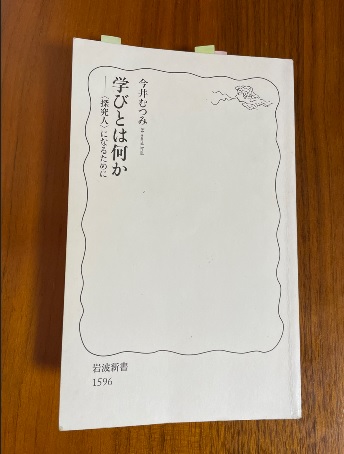 今井むつみ
学びとは何か
──〈探究人〉になるために
岩波新書
1596